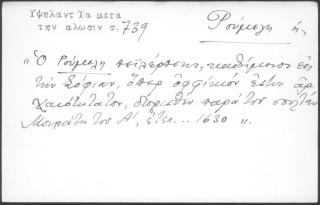 Υψηλαντ Τα μετα
την αλωσιν σ. 739
Ρούμελη ἡ.
„Ὁ Ρούμελη πεϊλέρπεης, καθήμενος εἰς
τὴν Σόφιαν, ὅπερ ὀφφίκιον ἐστιν ἀρ
χαιότατον, διορισθὲν παρὰ τοῦ σουλτὰν
Μουράτη τοῦ Α', ἔτει... 1630 „.